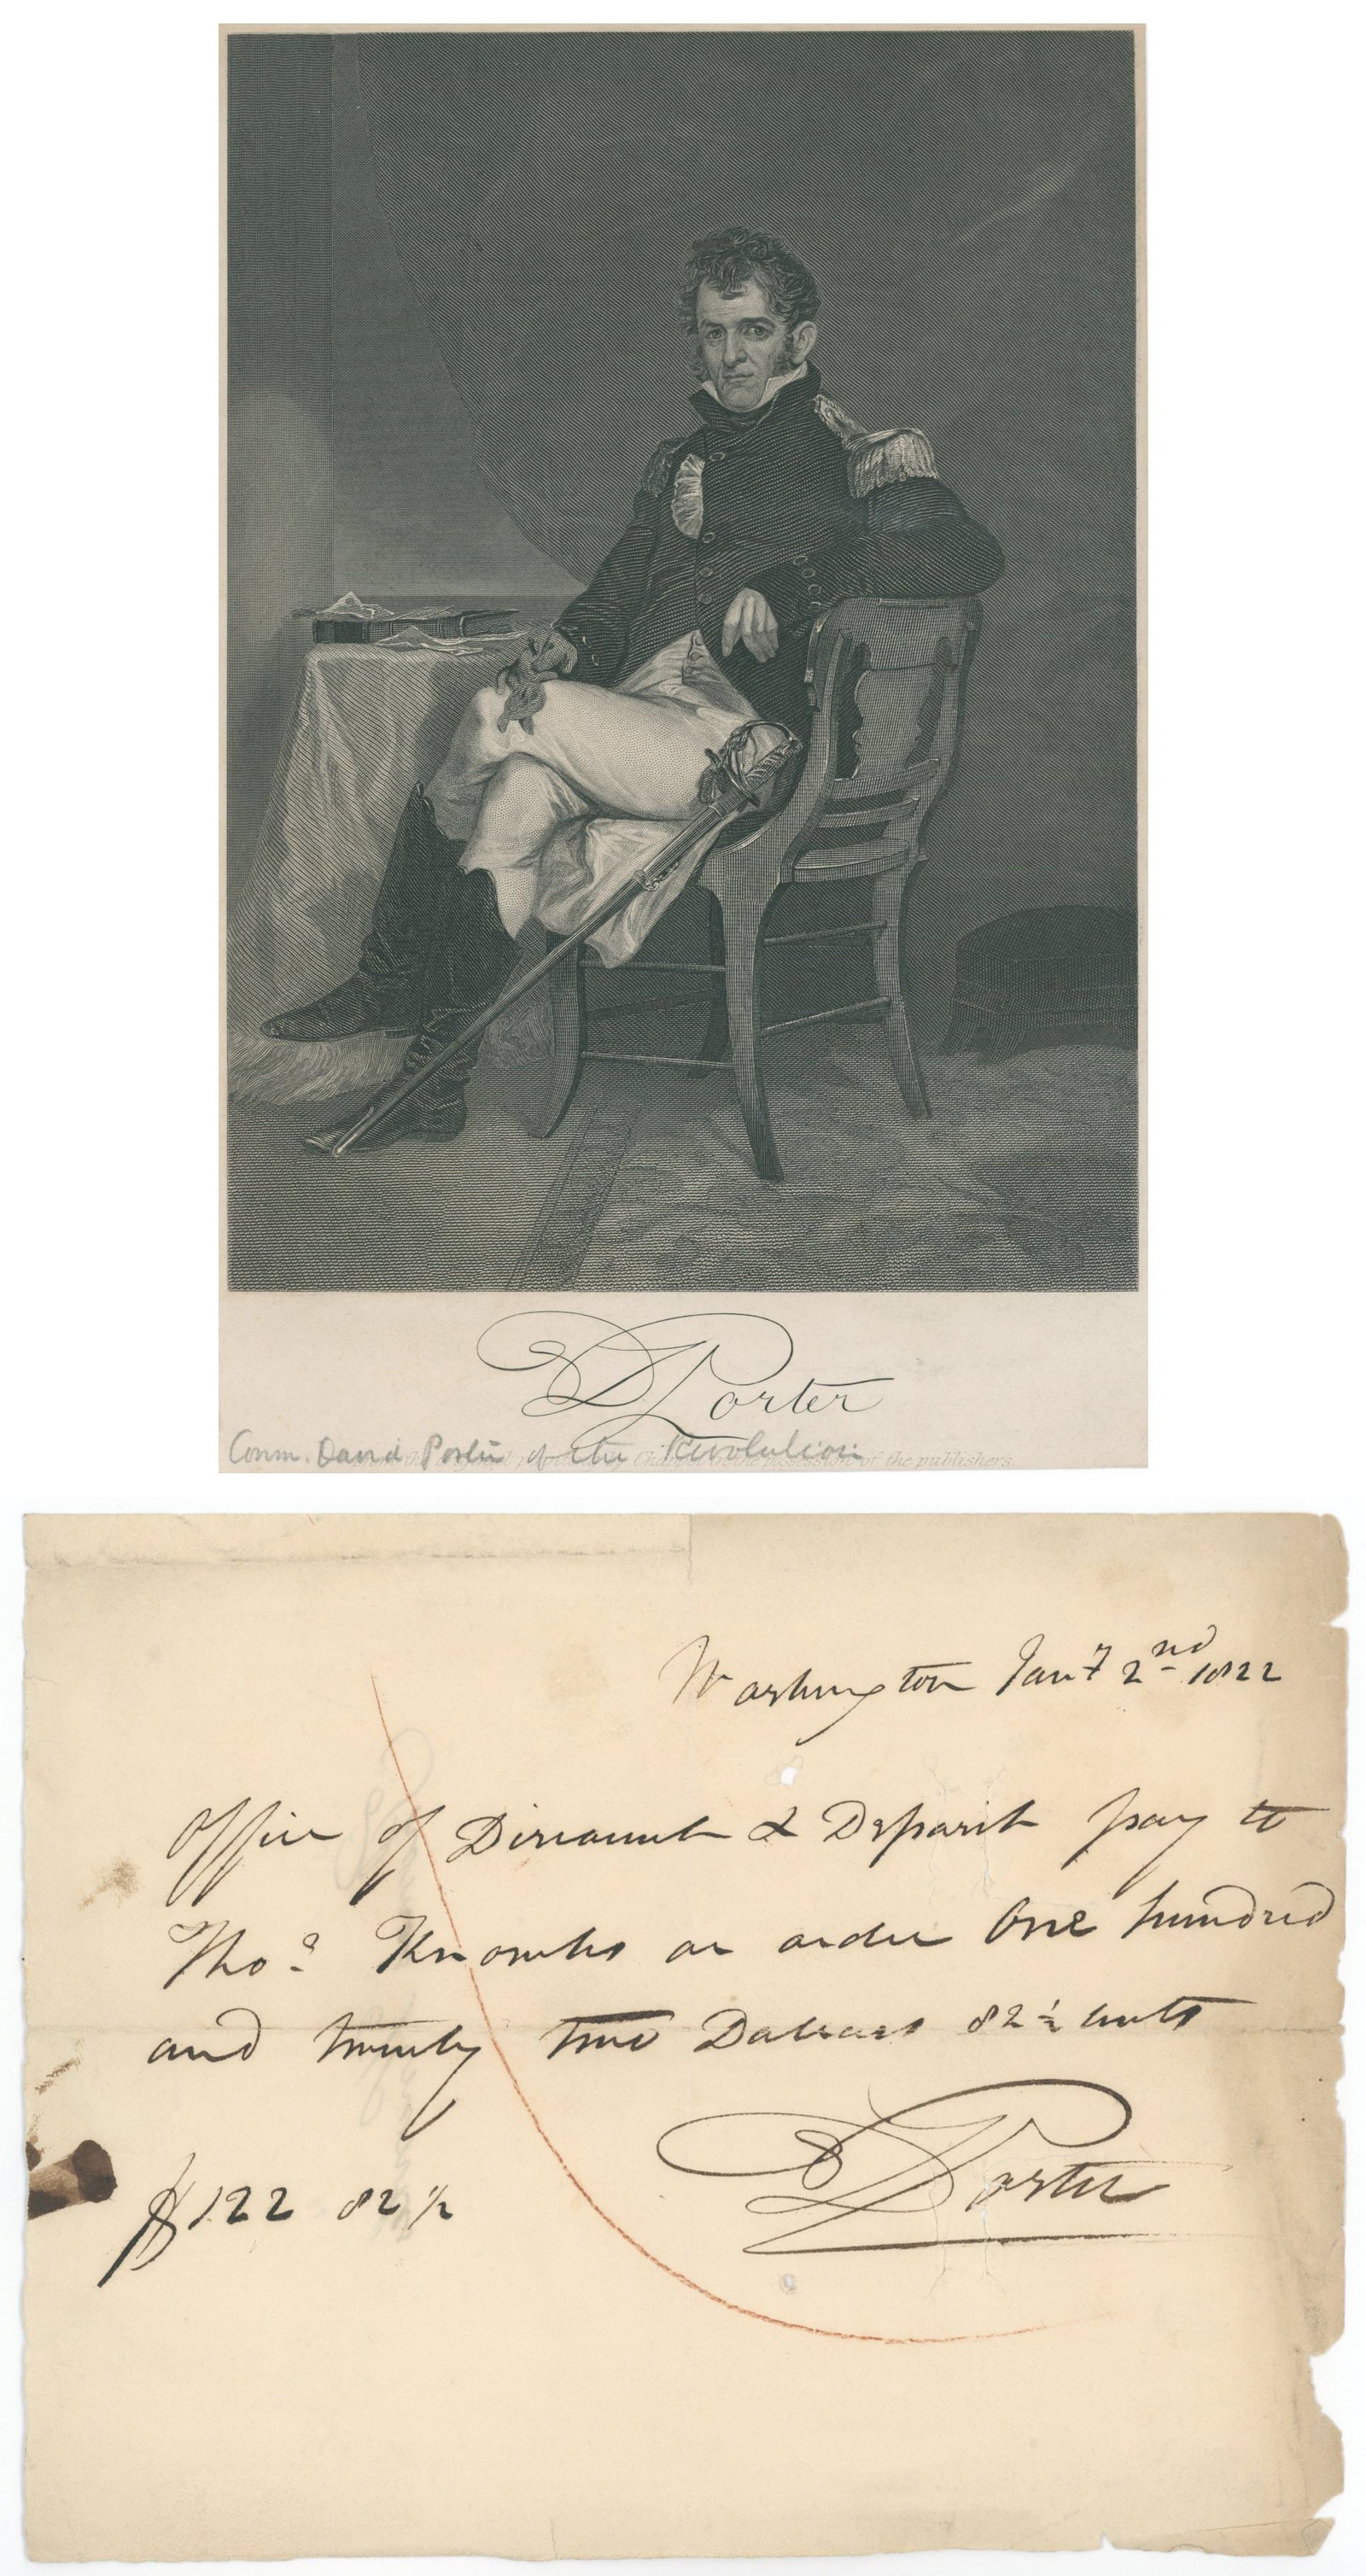 D Porter
Comm. David Porter of the Revolution
of the publishers
Washington Jany 2nd 1822
Office of Discount & Deposit pay to
Thos Knowles or order One hundred
and twenty two Dollars 82 ½ cents
D Porter
$122 82 ½